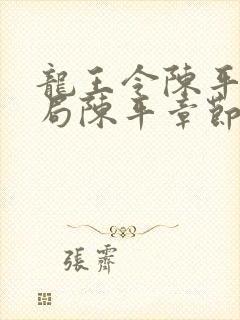 龍王令陳平
局陳平章節
張齋